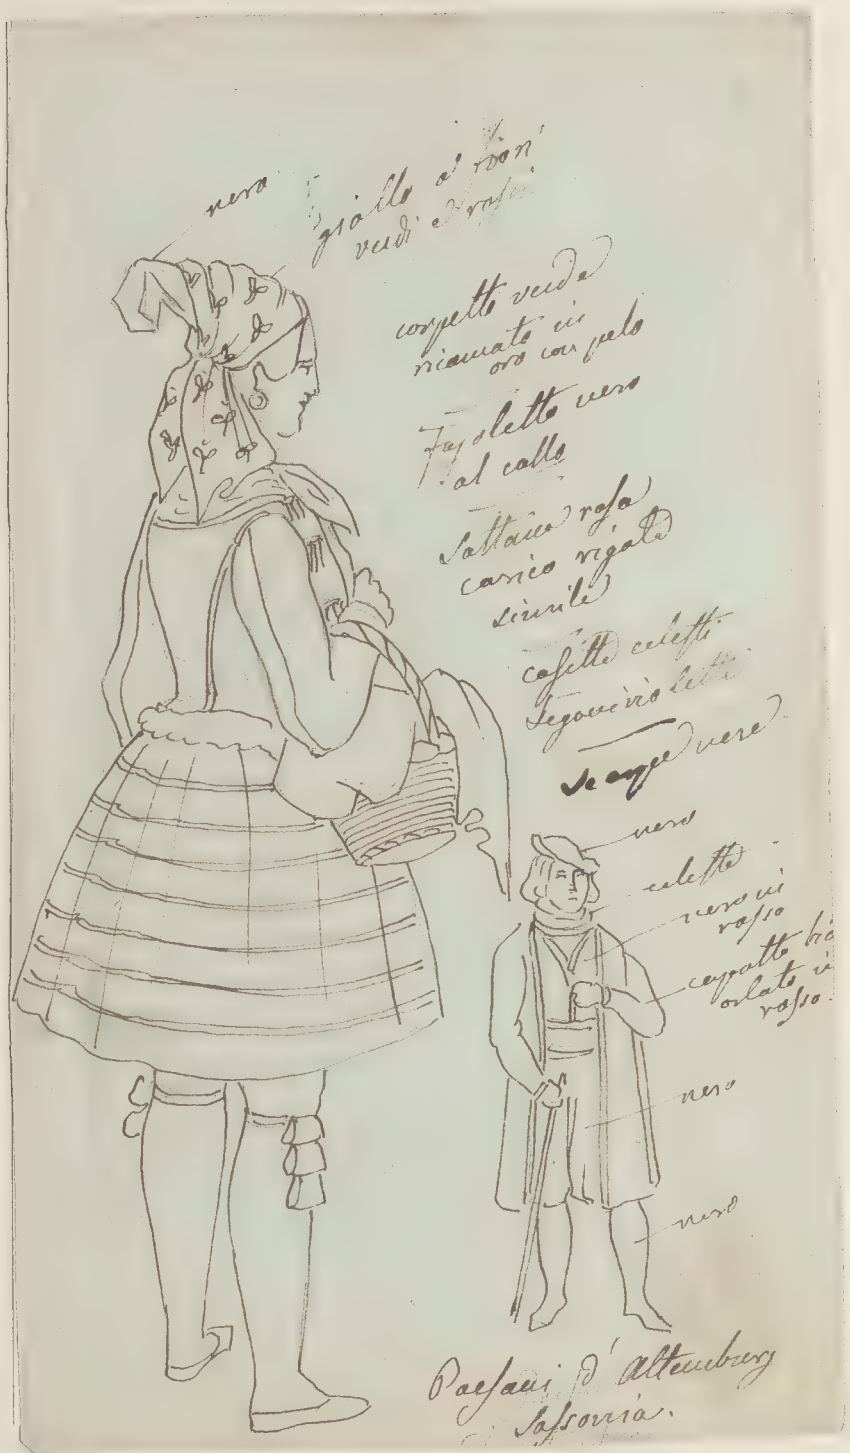 nero
giallo a fiori
verdi e rossi
corpetto verde
ricamato in
oro con pelo
Fazoletto nero
al collo
sottana rosa
carico rigata
simile
calsette celesti
legami violetti
scarpe nere
nero
celeste
nero in
rosso
capotto
orlato in
rosso
nero
nero
Paesani d'Altemburg
Sassonia.